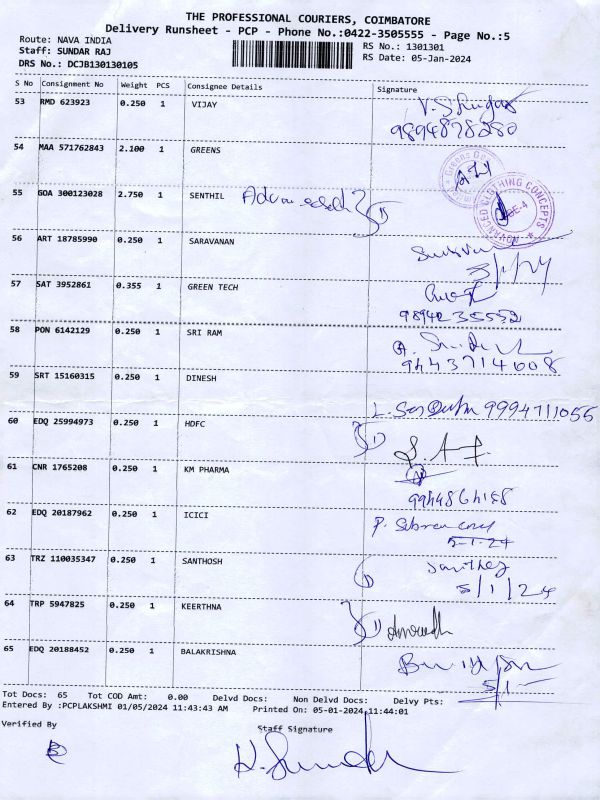 THE PROFESSIONAL COURIERS, COIMBATORE
Delivery Runsheet - PCP - Phone No.:0422-3505555 - Page No.:5
Route: NAVA INDIA
Staff: SUNDAR RAJ
DRS No.: DCJB130130105
RS No.: 1301301
RS Date: 05-Jan-2024
S No Consignment No Weight PCS Consignee Details Signature
53 RMD 623923 0.250 1 VIJAY
54 MAA 571762843 2.100 1 GREENS
55 GOA 300123028 2.750 1 SENTHIL
CLOTHING CONCEPTS
ADVANCED
56 ART 18785990 0.250 1 SARAVANAN
57 SAT 3952861 0.355 1 GREEN TECH
58 PON 6142129 0.250 1 SRI RAM
9443714608
59 SRT 15160315 0.250 1 DINESH
9994711056
60 EDQ 25994973 0.250 1 HDFC
61 CNR 1765208 0.250 1 KM PHARMA
62 EDQ 20187962 0.250 1 ICICI
5-1-24
63 TRZ 110035347 0.250 1 SANTHOSH
5/1/24
64 TRP 5947825 0.250 1 KEERTHNA
65 EDQ 20188452 0.250 1 BALAKRISHNA
Tot Docs: 65 Tot COD Amt: 0.00 Delvd Docs: Non Delvd Docs: Delvy Pts:
Entered By :PCPLAKSHMI 01/05/2024 11:43:43 AM Printed On: 05-01-2024 11:44:01
Verified By
Staff Signature